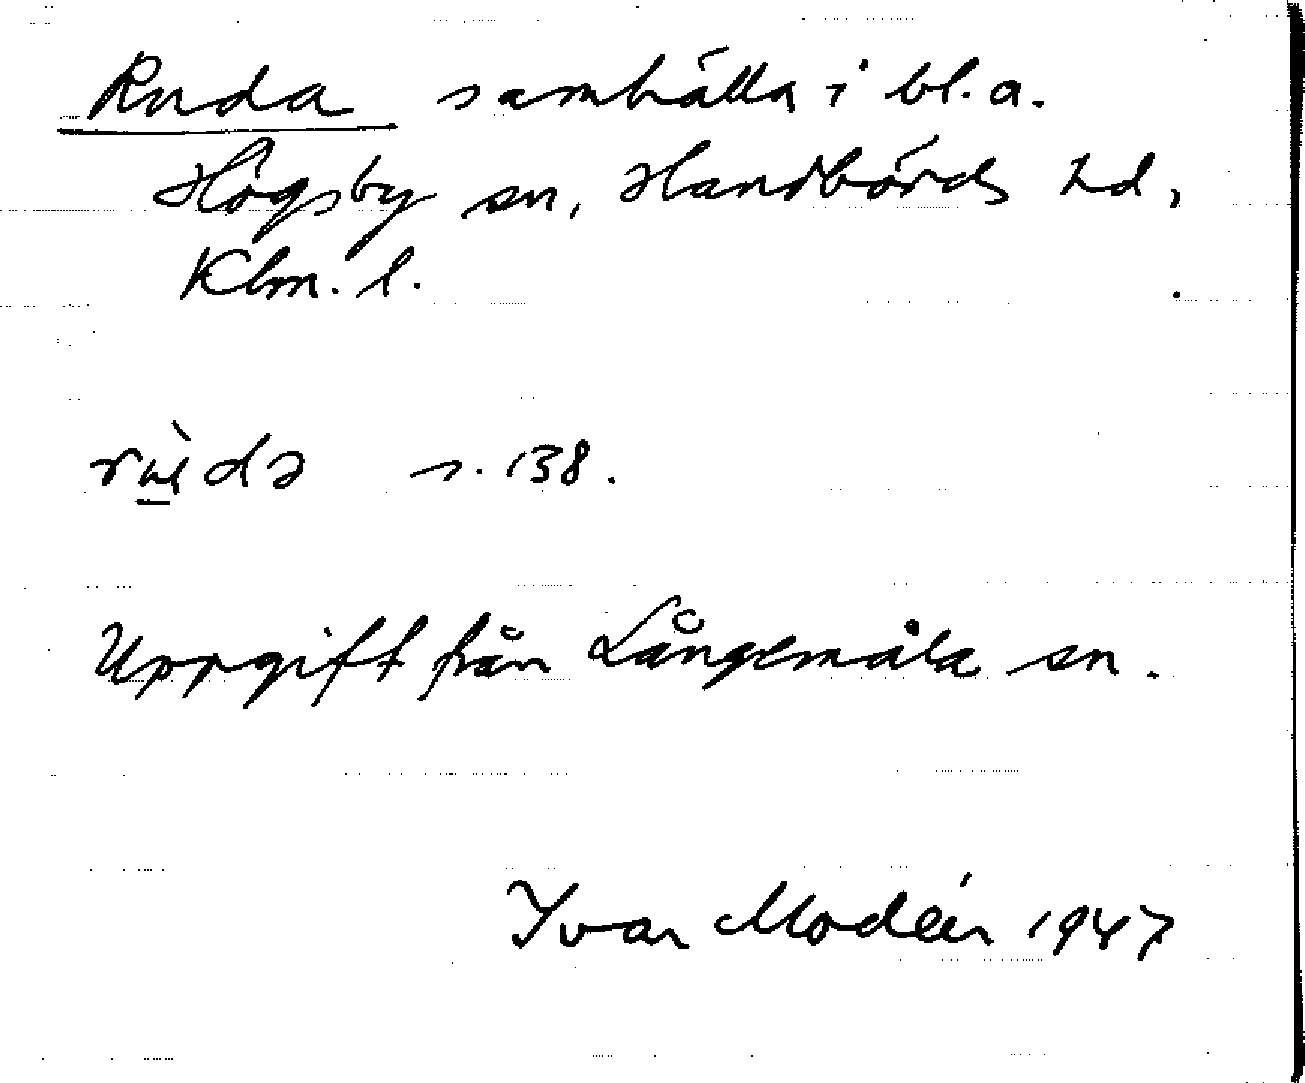 Ruda samhälla i bl.a.
Högsby sn, Handbörds hd,
Klm. l.
rù̱də s. 138.
Uppgift från Långemåla sn.
Yvar Modéer 1947